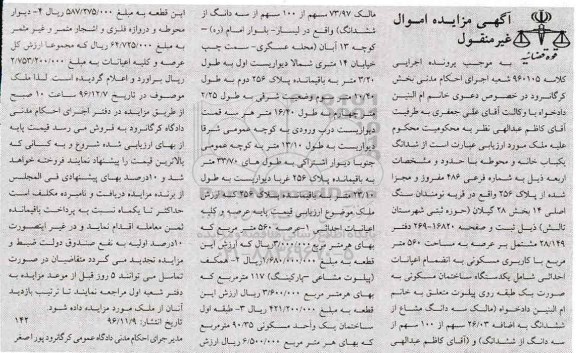 آگهی مزایده اموال
غیرمنقول
قوه قضائیه
به موجب پرونده اجرایی
کلاسه ۹۶۰۱۰۵ شعبه اجرای احکام مدنی بخش
کرگانرود در خصوص دعوی خانم ام البنین
دادخواه با وکالت آقای علی جعفری به طرفیت
آقای کاظم عبدالهی نظر به محکومیت محکوم
علیه ملک مورد ارزیابی عبارت است از ششدانگ
یکباب خانه و محوطه با حدود و مشخصات
اربعه ذیل به شماره فرعی ۴۸۶ مفروز و مجزا
شده از پلاک ۲۵۶ واقع در قریه نومندان سنگ
اصلی ۱۴ بخش ۲۸ گیلان (حوزه ثبتی شهرستان
تالش) ذیل ثبت و صفحه ۱۶۸۲۰-۲۶۹ دفتر
۲۸/۱۴۹ مشتمل بر عرصه به مساحت ۵۶۰ متر
مربع با کاربری مسکونی به انضمام اعیانات
احداثی شامل یکدستگاه ساختمان مسکونی به
صورت یک طبقه روی پیلوت متعلق به خانم
ام البنین دادخواه (مالک سه دانگ مشاع از
ششدانگ به اضافه ۲۶/۰۳ سهم از ۱۰۰ سهم از
سه دانگ از ششدانگ) و (آقای کاظم عبدالهی
مالک ۷۳/۹۷ سهم از ۱۰۰ سهم از سه دانگ از
ششدانگ) واقع در لیسار- بلوار امام (ره) –
کوچه ۱۳ آبان (محله عسگری- سمت چپ
خیابان ۱۴ متری شمالا دیواریست اول به طول
۳/۲۰ متر به باقیمانده پلاک ۲۵۶ دوم به طول
۱۰/۲۰ متر سوم وضعیت شرقی به طول ۲/۲۵
متر چهارم به طول ۱۶/۴۰ متر هر سه قسمت
دیواریست درب ورودی به کوچه عمومی شرقا
دیواریست به طول ۱۳/۱۰ متر به کوچه عمومی
جنوبا دیوار اشتراکی به طول های ۳۳/۷۰ متر
به باقیمانده پلاک ۲۵۶ غربا دیواریست به طول
۲۳/۱۰ متر به باقیمانده پلاک ۲۵۶ کل ارزش
ملک موضوع ارزیابی قیمت پایه عرصه و کلیه
اعیانات احداثی ۱-عرصه ۵۶۰ متر مربع که
بهای هر متر مربع ۳/۰۰۰/۰۰۰ ریال که ارزش این
قطعه به مبلغ ۱/۶۸۰/۰۰۰/۰۰۰ ریال ۲- همکف
(پیلوت مشاعی -پارکینگ) ۱۱۷ مترمربع که
بهای هرمتر مربع ۳/۶۰۰/۰۰۰ ریال ارزش این
قطعه به مبلغ ۴۲۱/۲۰۰/۰۰۰ ریال ۳- طبقه اول
ساختمان یک واحد مسکونی ۹۰/۳۵ مترمربع
که بهای هر متر مربع ۶/۵۰۰/۰۰۰ ریال ارزش
این قطعه به مبلغ ۵۸۷/۲۷۵/۰۰۰ ریال ۴- دیوار
محوطه و دروازه فلزی و اشجار مثمر و غیر مثمر
به مبلغ ۶۴/۷۲۵/۰۰۰ ریال که مجموعا ارزش کل
عرصه و کلیه اعیانات به مبلغ ۲/۷۵۳/۲۰۰/۰۰۰
ریال برآورد و اعلام گردیده است لذا ملک
موصوف در تاریخ ۹۶/۱۲/۷ ساعت ۱۰ صبح
از طریق مزایده در دفتر اجرای احکام مدنی
دادگاه کرگانرود به فروش می رسد قیمت پایه
از بهای ارزیابی شده شروع و به کسانی که
بالاترین قیمت را پیشنهاد نمایند فروخته خواهد
شد و ۱۰درصد بهای پیشنهادی فی المجلس
از برنده مزایده دریافت و نامبرده مکلف است
حداکثر تا یکماه نسبت به پرداخت باقیمانده
ثمن معامله اقدام نماید و در غیر اینصورت
۱۰درصد اولیه به نفع صندوق دولت ضبط و
مزایده تجدید می گردد متقاضیان در صورت
تمایل می توانند ۵ روز قبل از موعد مزایده به
دفتر شعبه اول مراجعه نمایند تا ترتیب بازدید
آنان از ملک مورد مزایده داده شود.
تاریخ انتشار: ۹۶/۱۱/۹ ۱۴۲
مدیر اجرای احکام مدنی دادگاه عمومی کرگانرود پور اصغر